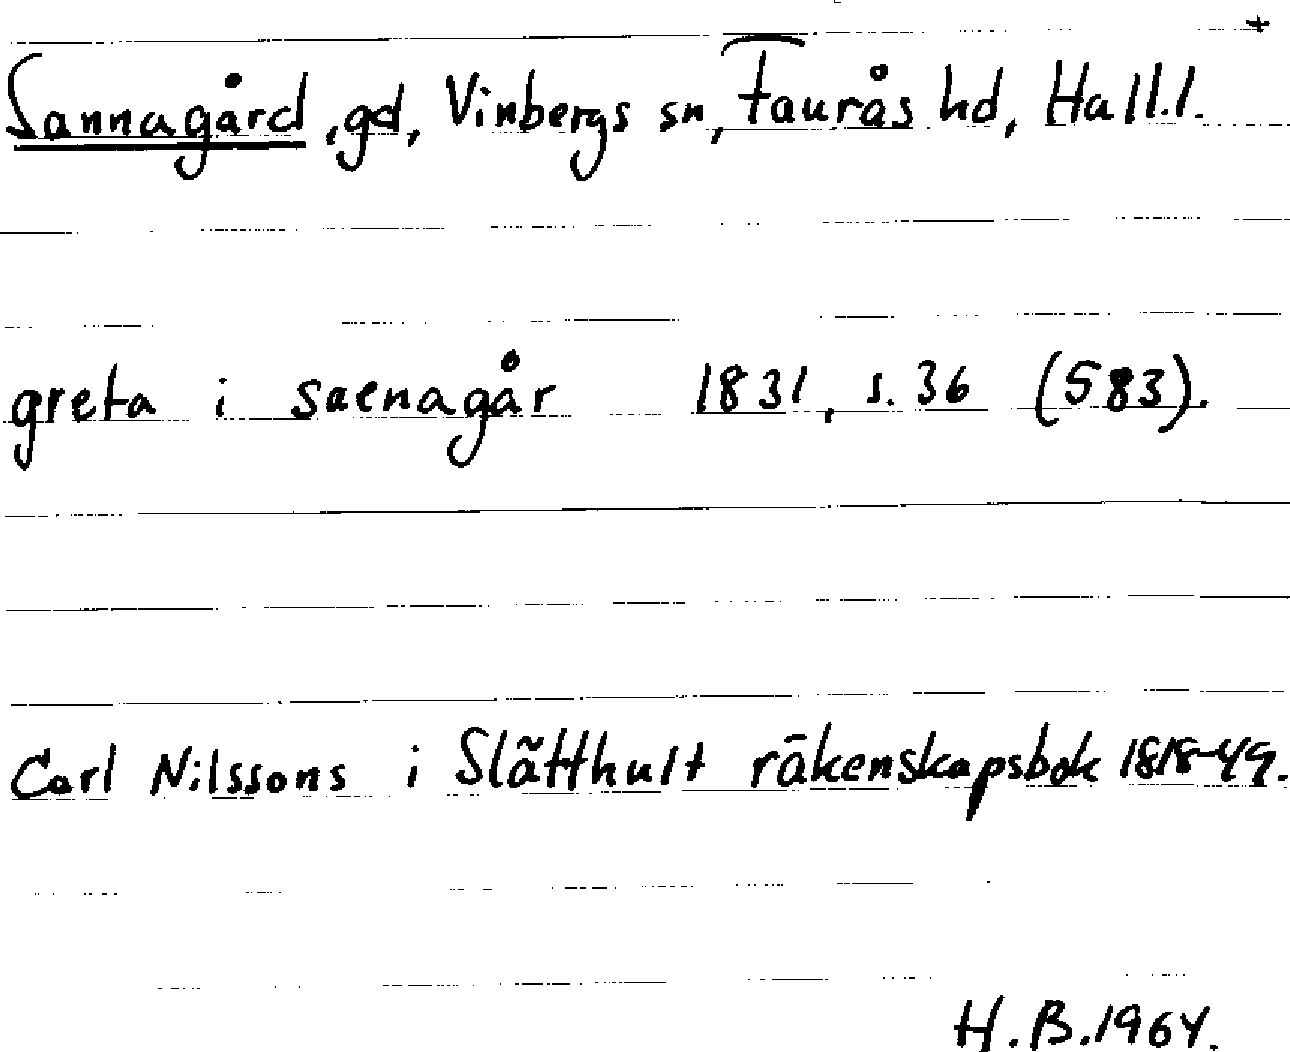 Sannagård, gd, Vinbergs sn, Faurås hd, Hall.l.
greta i saenagår 1831, s. 36 (583).
Carl Nilssons i Slätthult räkenskapsbok 1818-49.
H.B.1964.